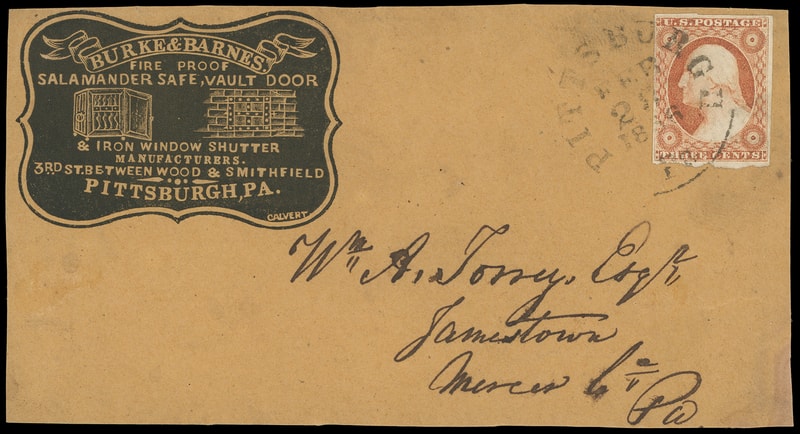 BURKE & BARNES,
FIRE PROOF
SALAMANDER SAFE, VAULT DOOR
& IRON WINDOW SHUTTER
MANUFACTURERS.
3RD ST. BETWEEN WOOD & SMITHFIELD
PITTSBURGH, PA.
CALVERT
PITTSBURGH
FEB
U.S. POSTAGE
THREE CENTS
Wm A. Torrey, Esqr,
Jamestown
Mercer Co
Pa